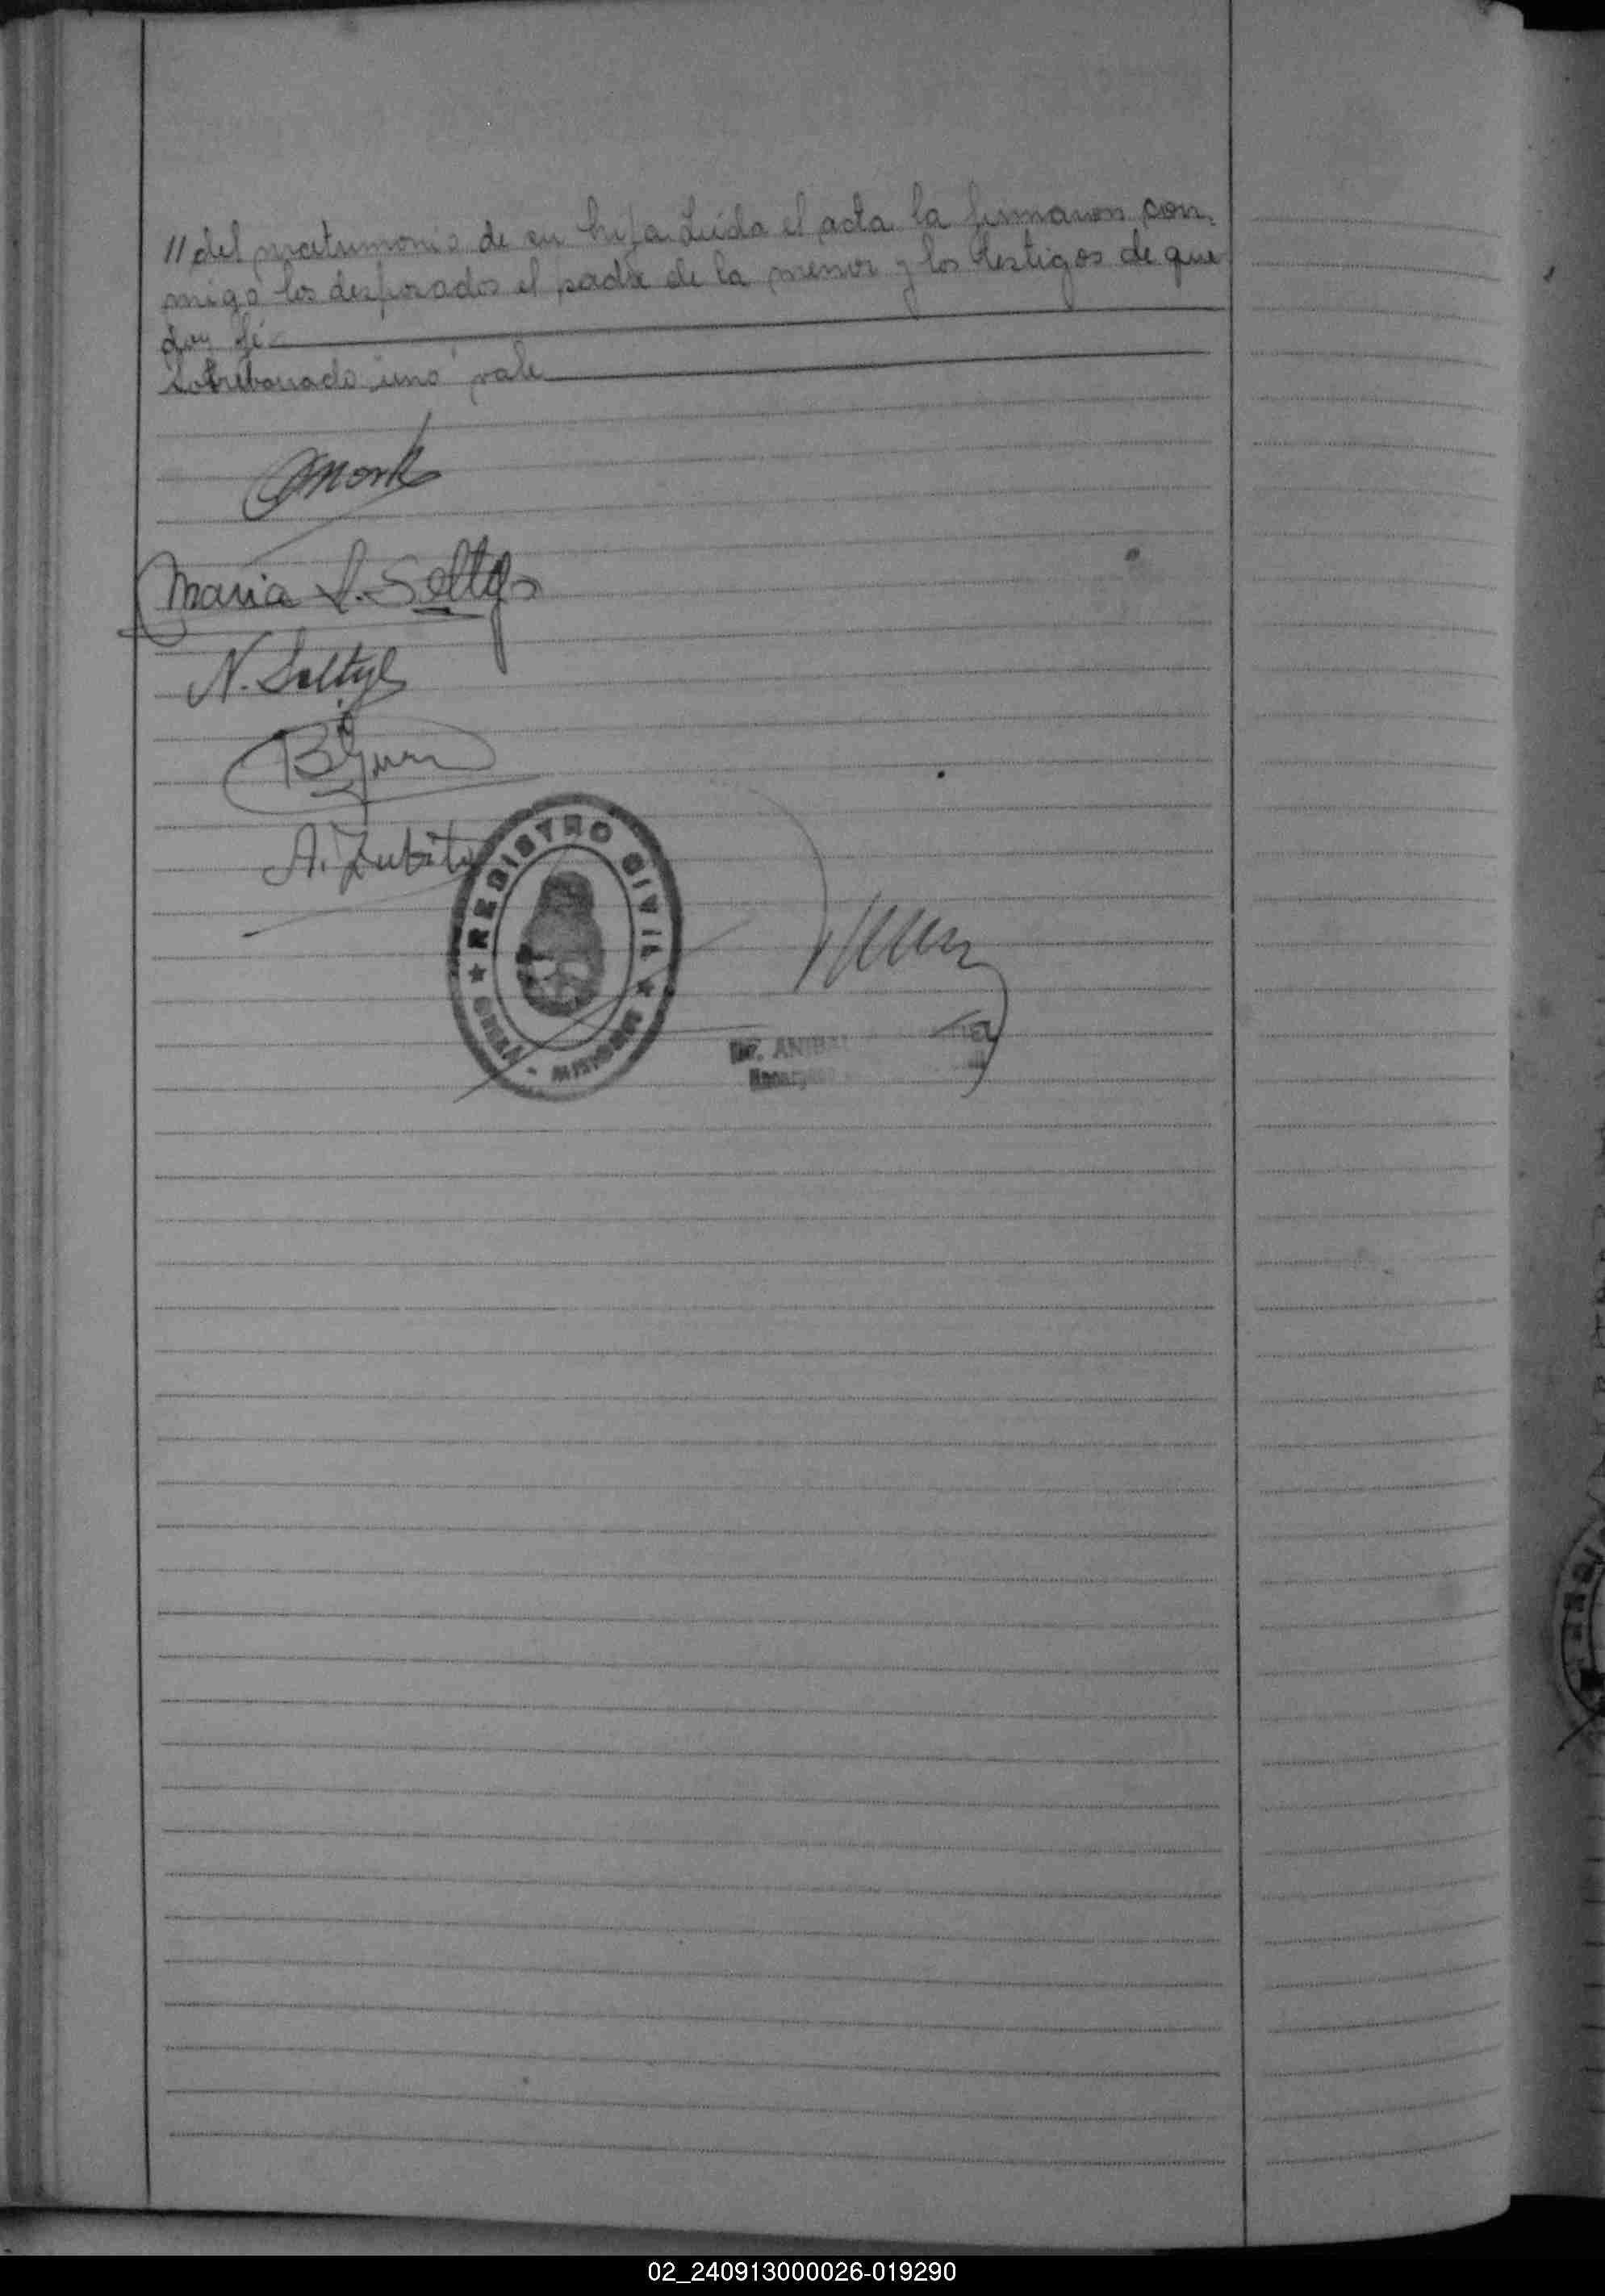 // del matrimonio de su hija. Leida el acta la firmaron con-
migo los desposados el padre de la menor y los testigos de que
doy fé
Sobreborrado "uno" vale
Maria S. Soltys
N. Soltys
A. Zubit
★ REGISTRO CIVIL ★
OBERA - MISIONES
Dr. ANIBAL
02_240913000026-019290